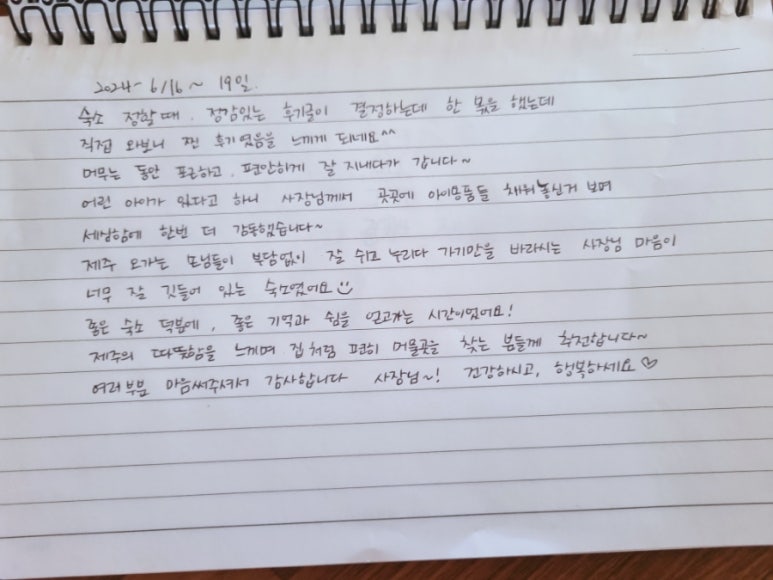 2024- 6/16 ~ 19일.
숙소 정할 때, 정감있는 후기글이 결정하는데 한 몫을 했는데
직접 와보니 찐 후기였음을 느끼게 되네요^^
머무는 동안 포근하고, 편안하게 잘 지내다가 갑니다~
어린 아이가 있다고 하니 사장님께서 곳곳에 아이용품들 채워놓신거 보며
세심함에 한번 더 감동했습니다~
제주 오가는 손님들이 부담없이 잘 쉬고 누리다 가기만을 바라시는 사장님 마음이
너무 잘 깃들어 있는 숙소였어요
좋은 숙소 덕분에, 좋은 기억과 쉼을 얻고가는 시간이었어요!
제주의 따뜻함을 느끼며 집처럼 편히 머물곳을 찾는 분들께 추천합니다~
여러부분 마음써주셔서 감사합니다 사장님~! 건강하시고, 행복하세요♡